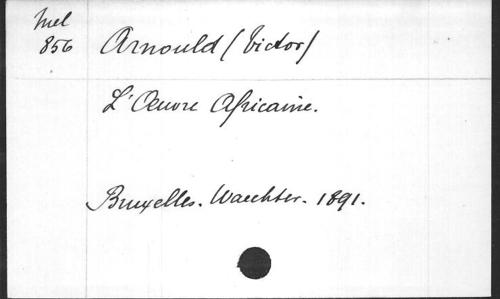 Mel
856
Arnould (Victor)
L'Œuvre Africaine.
Bruxelles. Waechter. 1891.